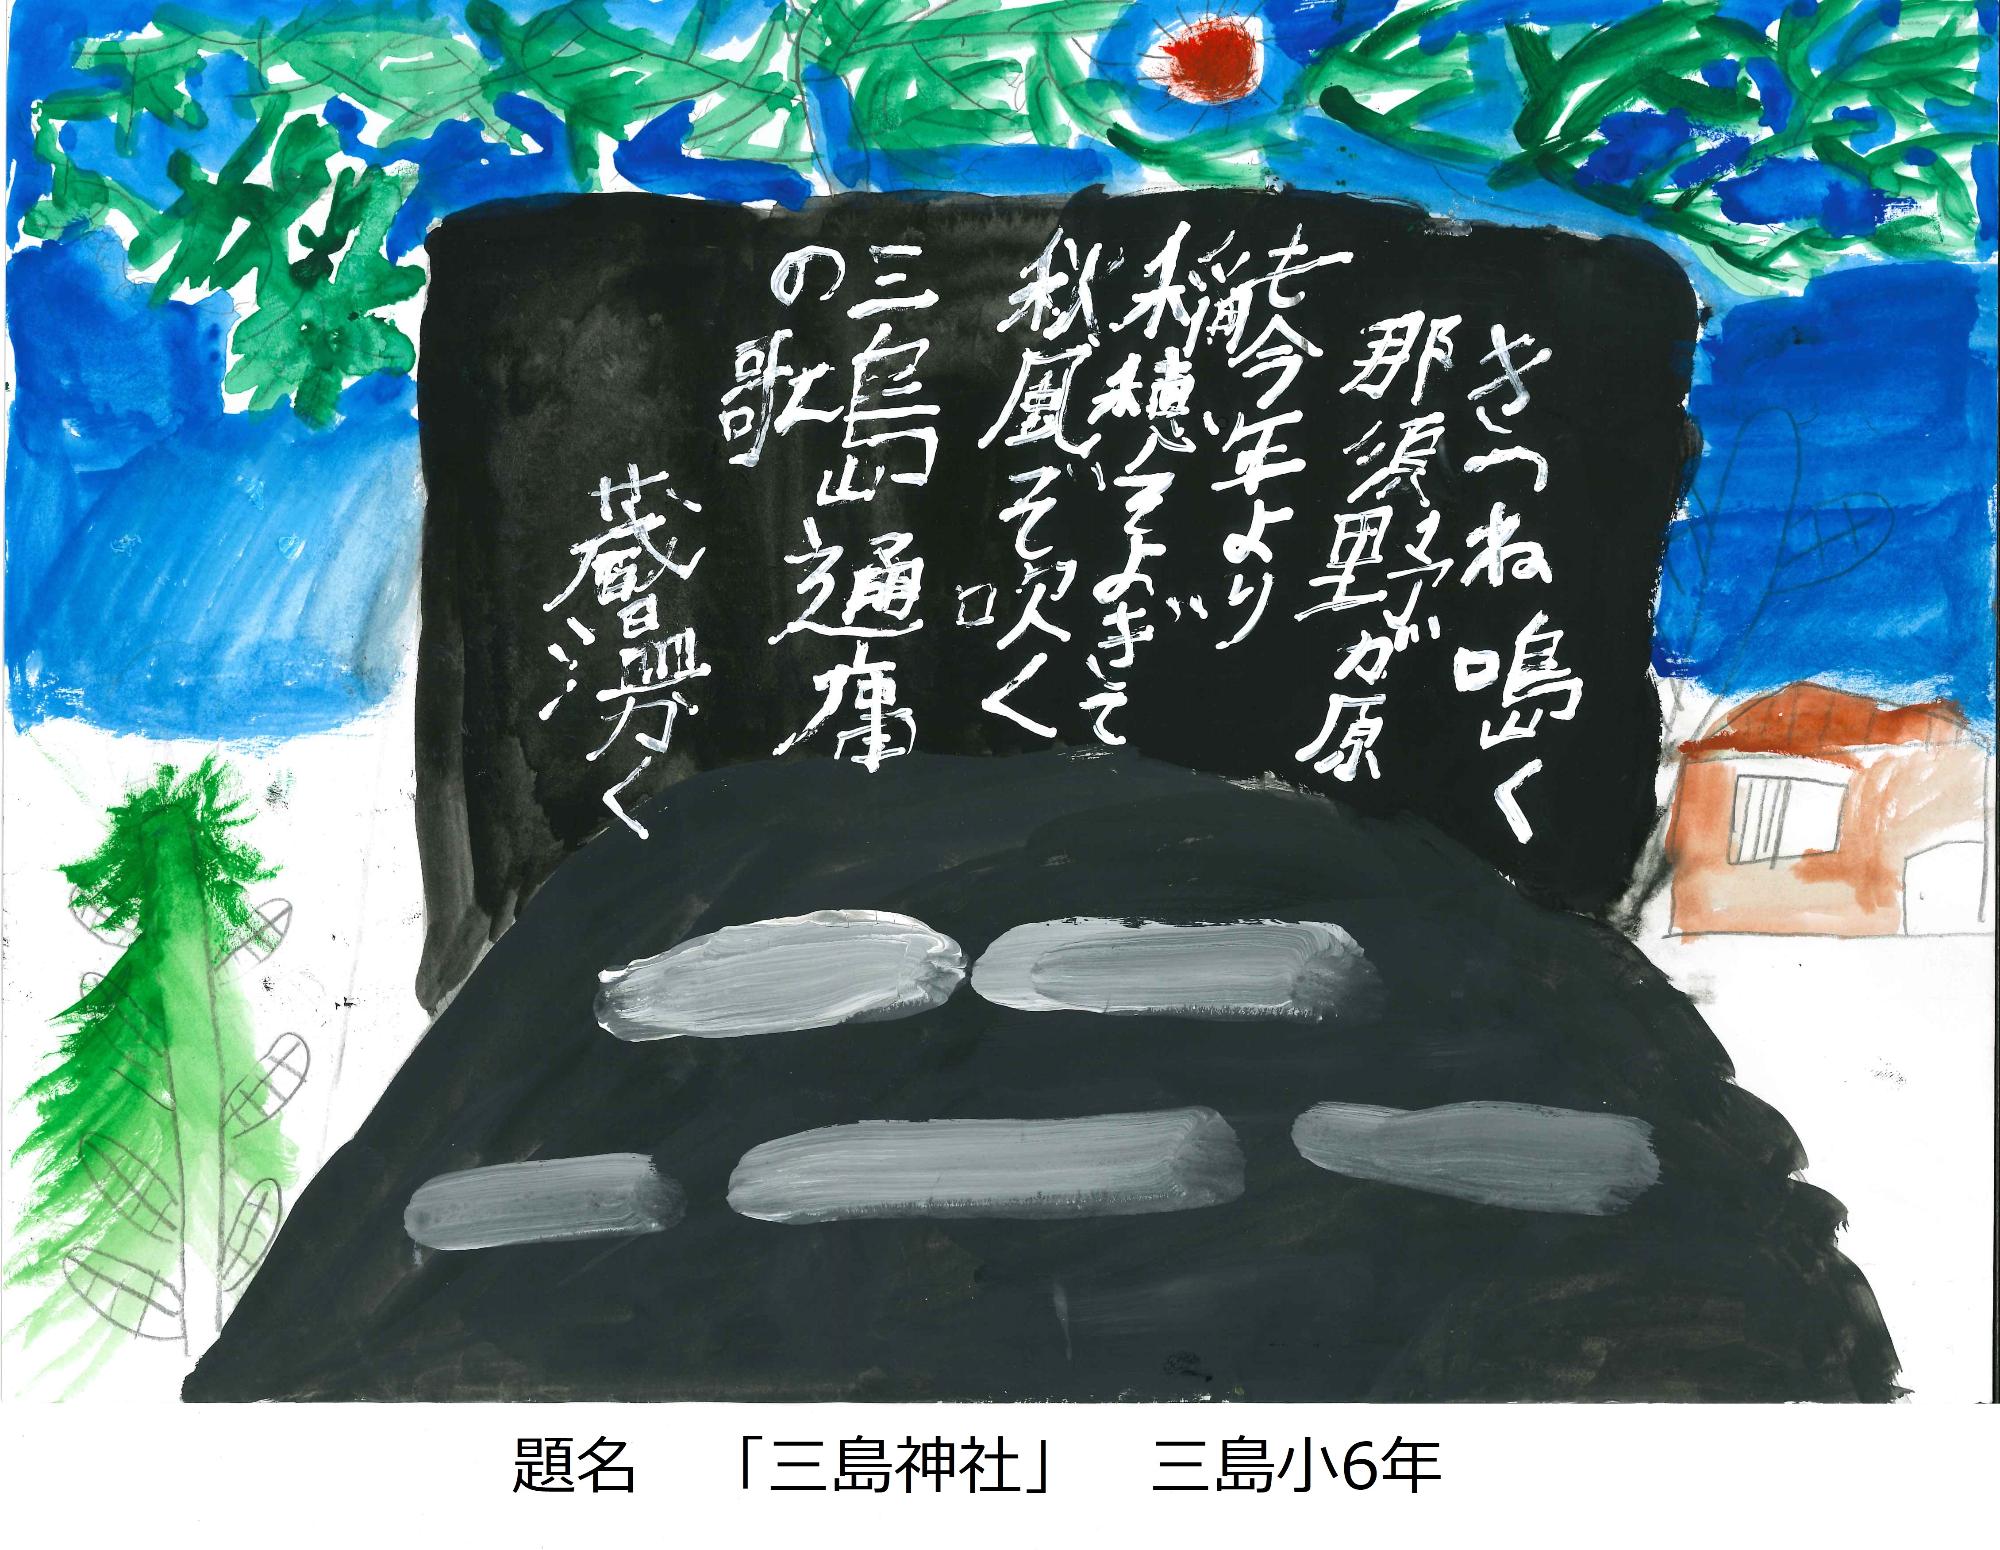 きつね鳴く
那須野が原
も今年より
稲穂そよぎて
秋風ぞ吹く
三島通庸
の歌
蔵澷く
題名 「三島神社」 三島小6年